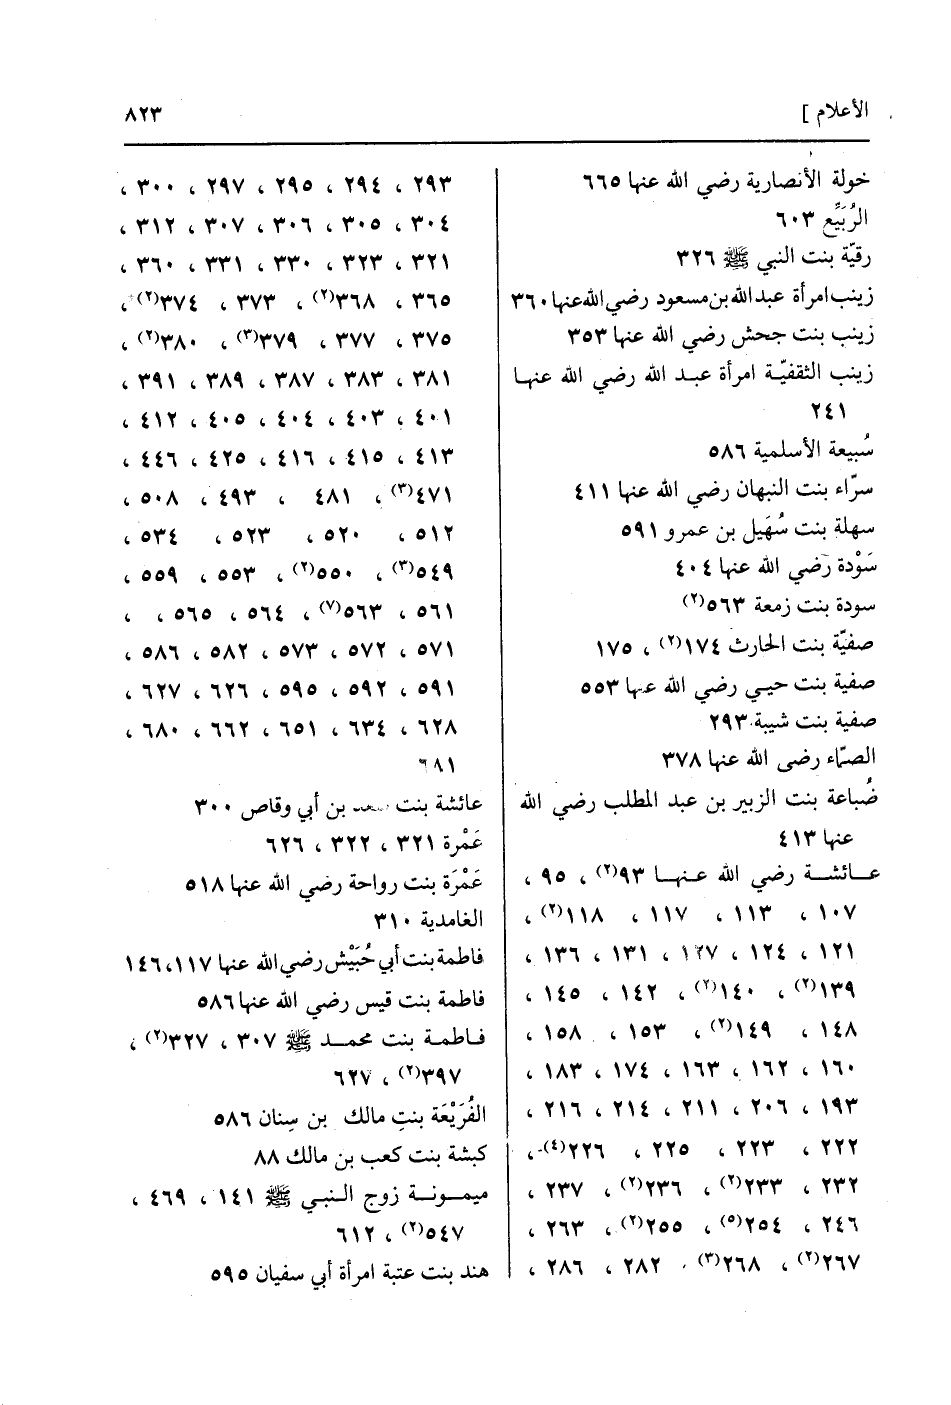 الأعلام ]
٨٢٣
خولة الأنصارية رضي الله عنها ٦٦٥
الرُبَيِّع ٦٠٣
رقيّة بنت النبي ﷺ ٣٢٦
زينب امرأة عبدالله بن مسعود رضي الله عنها ٣٦٠
زينب بنت جحش رضي الله عنها ٣٥٣
زينب الثقفيّة امرأة عبد الله رضي الله عنها
٢٤١
سُبيعة الأسلمية ٥٨٦
سرّاء بنت النبهان رضي الله عنها ٤١١
سهلة بنت سُهَيل بن عمرو ٥٩١
سَوْدة رضي الله عنها ٤٠٤
سودة بنت زمعة ٥٦٣(٢)
صفيّة بنت الحارث ١٧٤(٢) ، ١٧٥
صفية بنت حيي رضي الله عنها ٥٥٣
صفية بنت شيبة ٢٩٣
الصمّاء رضي الله عنها ٣٧٨
ضُباعة بنت الزبير بن عبد المطلب رضي الله
عنها ٤١٣
عائشة رضي الله عنها ٩٣(٢) ، ٩٥ ،
١٠٧ ، ١١٣ ، ١١٧ ، ١١٨(٢) ،
١٢١ ، ١٢٤ ، ١٢٧ ، ١٣١ ، ١٣٦ ،
١٣٩(٢) ، ١٤٠(٢) ، ١٤٢ ، ١٤٥ ،
١٤٨ ، ١٤٩(٢) ، ١٥٣ ، ١٥٨ ،
١٦٠ ، ١٦٢ ، ١٦٣ ، ١٧٤ ، ١٨٣ ،
١٩٣ ، ٢٠٦ ، ٢١١ ، ٢١٤ ، ٢١٦ ،
٢٢٢ ، ٢٢٣ ، ٢٢٥ ، ٢٢٦(٤) ،
٢٣٢ ، ٢٣٣(٢) ، ٢٣٦(٢) ، ٢٣٧ ،
٢٤٦ ، ٢٥٤(٥) ، ٢٥٥(٢) ، ٢٦٣ ،
٢٦٧(٢) ، ٢٦٨(٣) ، ٢٨٢ ، ٢٨٦ ،
٢٩٣ ، ٢٩٤ ، ٢٩٥ ، ٢٩٧ ، ٣٠٠ ،
٣٠٤ ، ٣٠٥ ، ٣٠٦ ، ٣٠٧ ، ٣١٢ ،
٣٢١ ، ٣٢٣ ، ٣٣٠ ، ٣٣١ ، ٣٦٠ ،
٣٦٥ ، ٣٦٨(٢) ، ٣٧٣ ، ٣٧٤(٢) ،
٣٧٥ ، ٣٧٧ ، ٣٧٩(٣) ، ٣٨٠(٢) ،
٣٨١ ، ٣٨٣ ، ٣٨٧ ، ٣٨٩ ، ٣٩١ ،
٤٠١ ، ٤٠٣ ، ٤٠٤ ، ٤٠٥ ، ٤١٢ ،
٤١٣ ، ٤١٥ ، ٤١٦ ، ٤٢٥ ، ٤٤٦ ،
٤٧١(٣) ، ٤٨١ ، ٤٩٣ ، ٥٠٨ ،
٥١٢ ، ٥٢٠ ، ٥٢٣ ، ٥٣٤ ،
٥٤٩(٣) ، ٥٥٠(٢) ، ٥٥٣ ، ٥٥٩ ،
٥٦١ ، ٥٦٣(٧) ، ٥٦٤ ، ٥٦٥ ، ،
٥٧١ ، ٥٧٢ ، ٥٧٣ ، ٥٨٢ ، ٥٨٦ ،
٥٩١ ، ٥٩٢ ، ٥٩٥ ، ٦٢٦ ، ٦٢٧ ،
٦٢٨ ، ٦٣٤ ، ٦٥١ ، ٦٦٢ ، ٦٨٠ ،
٦٨١
عائشة بنت سعد بن أبي وقاص ٣٠٠
عَمْرة ٣٢١ ، ٣٢٢ ، ٦٢٦
عَمْرَة بنت رواحة رضي الله عنها ٥١٨
الغامدية ٣١٠
فاطمة بنت أبي حُبَيْش رضي الله عنها ١١٧ ، ١٤٦
فاطمة بنت قيس رضي الله عنها ٥٨٦
فاطمة بنت محمد ﷺ ٣٠٧ ، ٣٢٧(٢) ،
٣٩٧(٢) ، ٦٢٧
الفُرَيْعَة بنتِ مالك بن سِنان ٥٨٦
كبشة بنت كعب بن مالك ٨٨
ميمونة زوج النبي ﷺ ١٤١ ، ٤٦٩ ،
٥٤٧(٢) ، ٦١٢
هند بنت عتبة امرأة أبي سفيان ٥٩٥